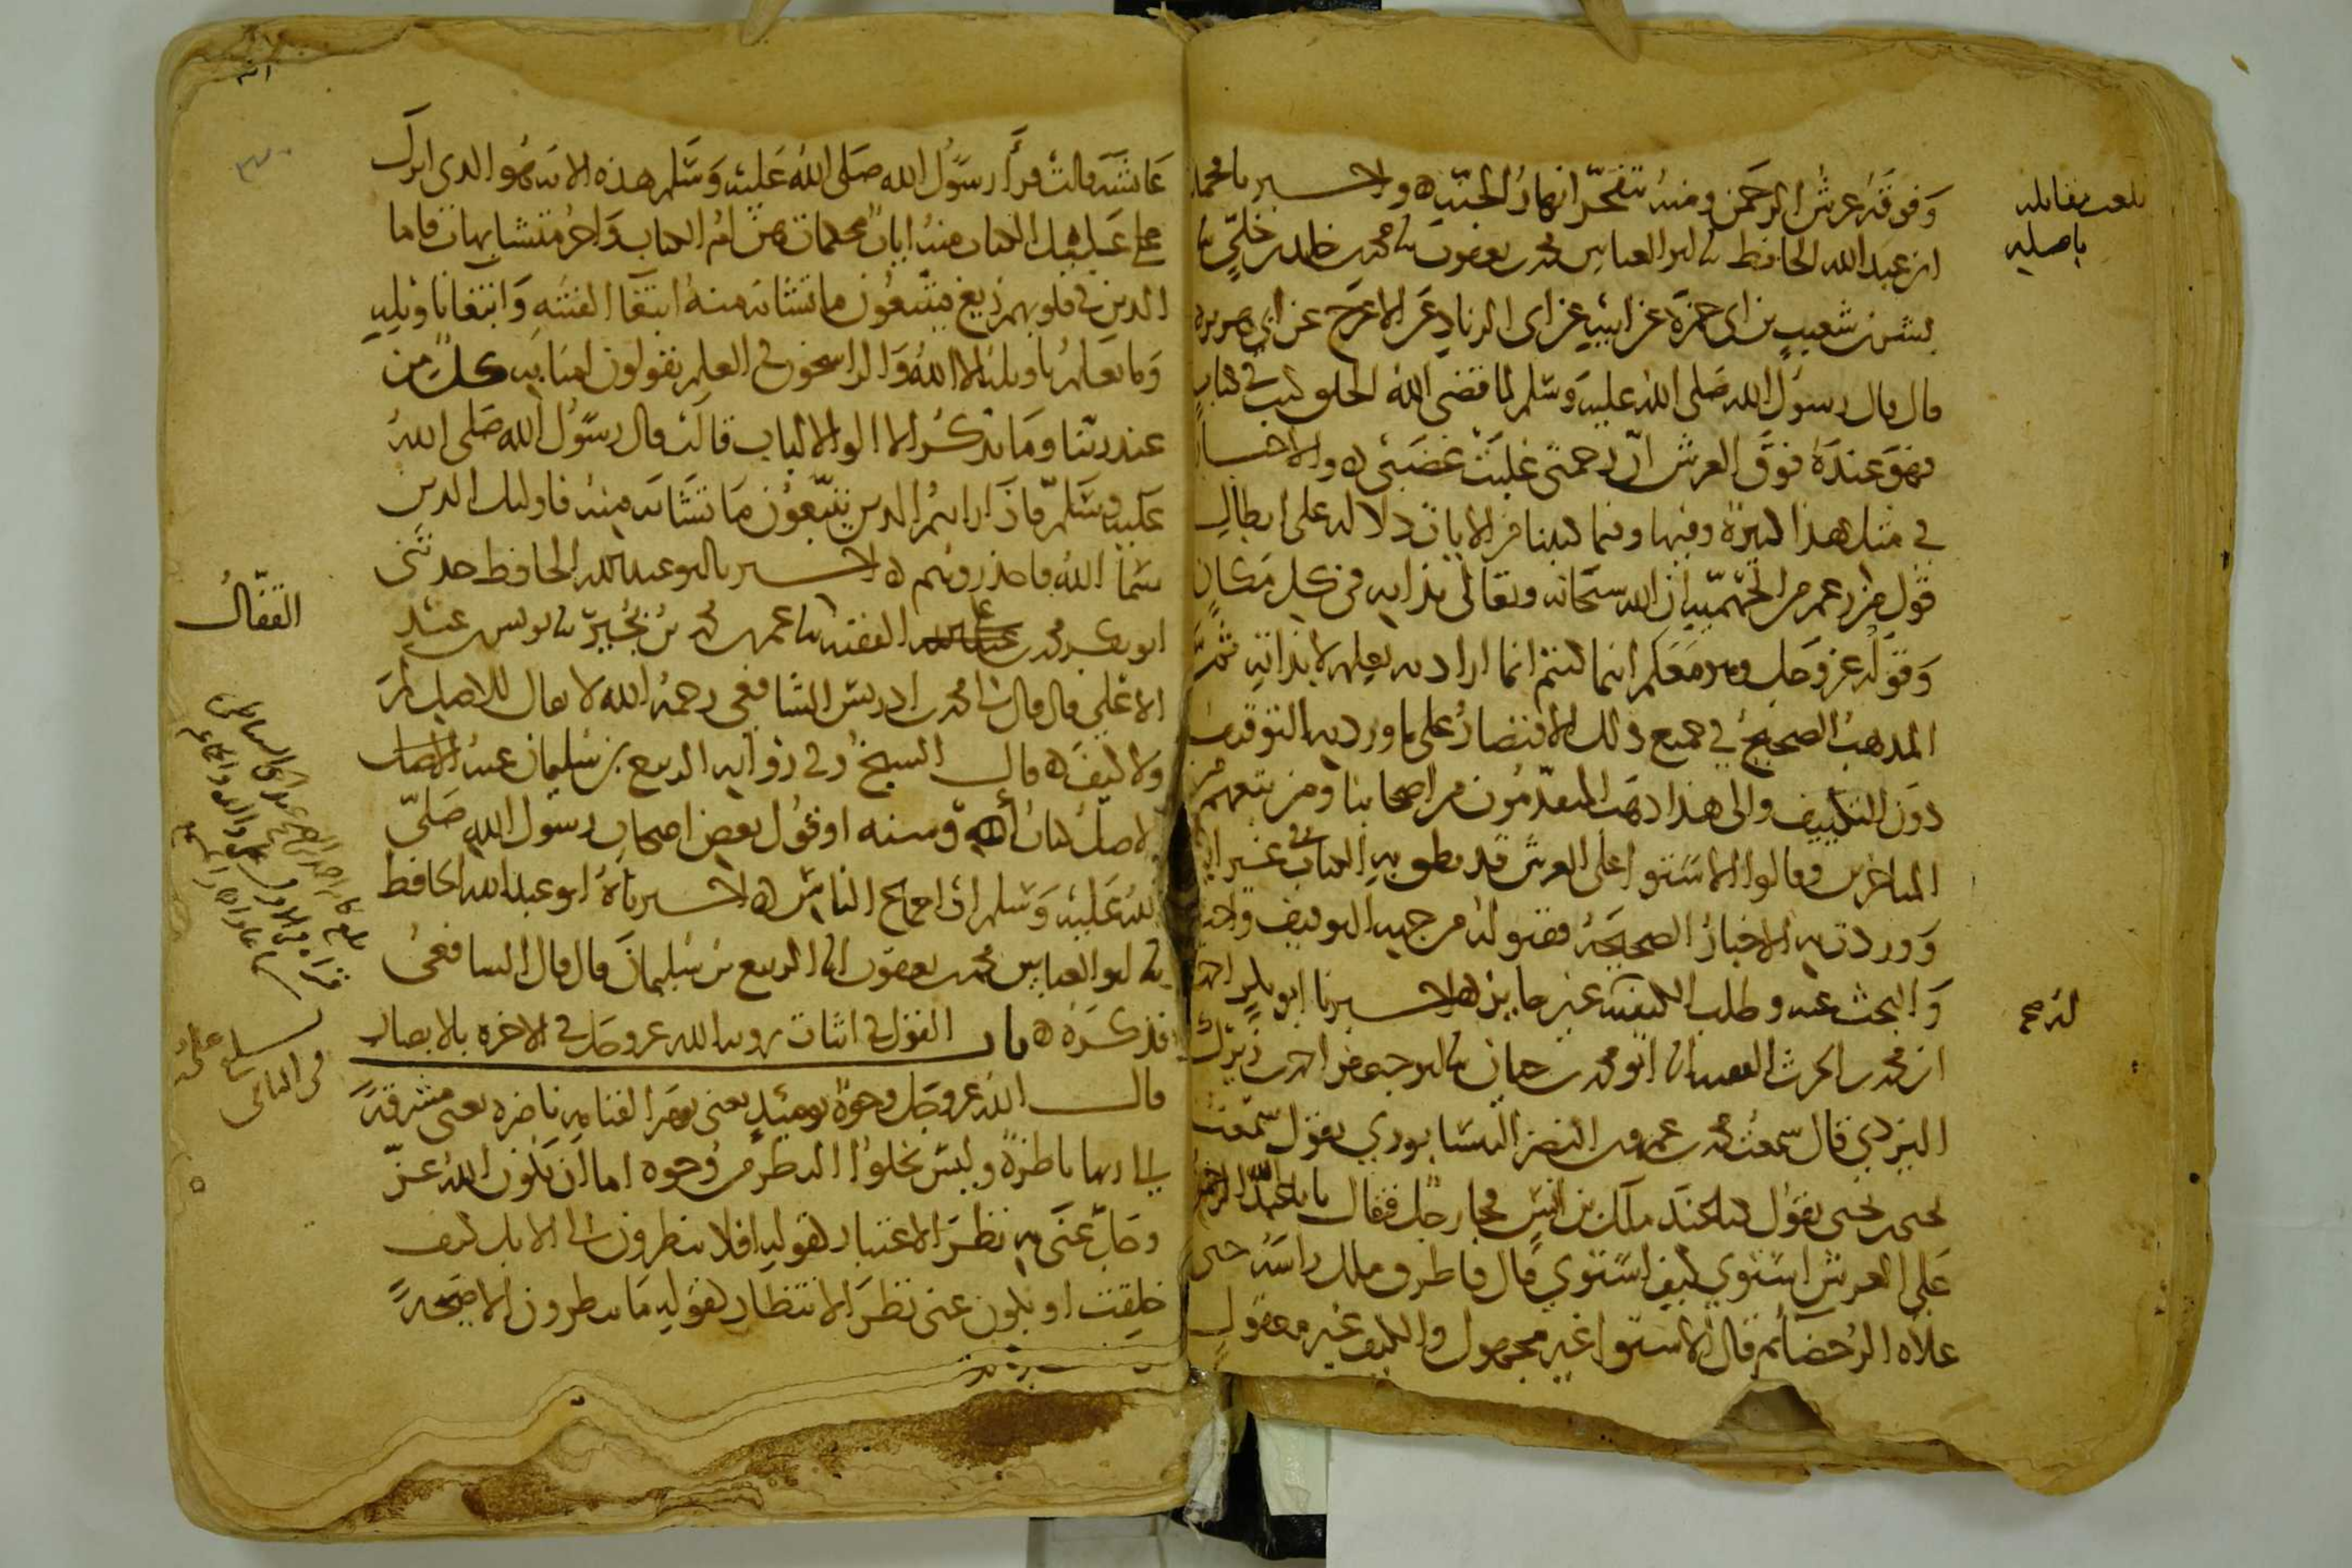 وفوقه عرش الرحمن ومنه تفجر انهار الجنة ه واخبرنا محمد
ابن عبد الله الحافظ ثنا ابو العباس محمد بن يعقوب ثنا محمد بن خالد بن خلي ثنا
بشر بن شعيب بن ابي حمزة عن ابيه عن ابي الزناد عن الاعرج عن ابي هريرة
قال قال رسول الله صلى الله عليه وسلم لما قضى الله الخلق كتب في كتاب
فهو عنده فوق العرش ان رحمتي غلبت غضبي ه والاخبار
في مثل هذا كثيرة وفيها وفيما كتبنا من الايات دلالة على ابطال
قول من زعم من الجهمية ان الله سبحانه وتعالى بذاته في كل مكان
وقوله عز وجل وهو معكم اينما كنتم انما اراد به بعلمه لا بذاته ثم
المذهب الصحيح في جميع ذلك الاقتصار على ما ورد به التوقيف
دون التكييف والى هذا ذهب المتقدمون من اصحابنا ومن تبعهم من
المتاخرين وقالوا الاستوا على العرش قد نطق به الكتاب في غير اية
ووردت به الاخبار الصحيحة فقبوله من جهة التوقيف واجب
والبحث عنه وطلب الكيفية غير جايز ه اخبرنا ابو بكر احمد
ابن محمد بن الحرث الفقيه انا ابو محمد بن حيان ثنا ابو جعفر احمد بن زيرك
اليزدي قال سمعت محمد بن عمرو بن النضر النيسابوري يقول سمعت
يحيى بن يحيى يقول كنا عند ملك بن انس فجا رجل فقال يا با عبد الله الرحمن
على العرش استوى كيف استوى قال فاطرق ملك راسه حتى
علاه الرحضا ثم قال الاستوا غير مجهول والكيف غير معقول
بلغت مقابله
باصليه
عائشة قالت قرأ رسول الله صلى الله عليه وسلم هذه الاية هو الذي انزل
عليك الكتاب منه ايات محكمات هن ام الكتاب واخر متشابهات فاما
الذين في قلوبهم زيغ فيتبعون ما تشابه منه ابتغا الفتنة وابتغا تاويله
وما يعلم تاويله الا الله والراسخون في العلم يقولون امنا به كل من
عند ربنا وما يذكر الا الوا الالباب قالت قال رسول الله صلى الله
عليه وسلم فاذا رايتم الذين يتبعون ما تشابه منه فاوليك الذين
سما الله فاحذروهم ه اخبرنا ابو عبد الله الحافظ حدثني
ابو بكر محمد بن علي الفقيه ثنا عمر بن محمد بن بجير ثنا يونس بن عبد
الاعلى قال قال لي محمد بن ادريس الشافعي رحمه الله لا يقال للاصل لم
ولا كيف ه قال الشيخ وفي رواية الربيع بن سليمان عنه الاصل
لاصل كتاب الله وسنه او قول بعض اصحاب رسول الله صلى
الله عليه وسلم او اجماع الناس ه اخبرناه ابو عبد الله الحافظ
ثنا ابو العباس محمد بن يعقوب انا الربيع بن سليمان قال قال الشافعي
فذكره ه باب القول في اثبات روية الله عز وجل في الاخرة بالابصار
قال الله عز وجل وجوه يوميذ يعني يوم القيامة ناضرة يعني مشرقة
الى ربها ناظرة وليس يخلوا النظر من وجوه اما ان يكون الله عز
وجل عنى به نظر الاعتبار لقوله افلا ينظرون الى الابل كيف
خلقت او يكون عنى نظر الانتظار لقوله ما ينظرون الا صيحة
القفال